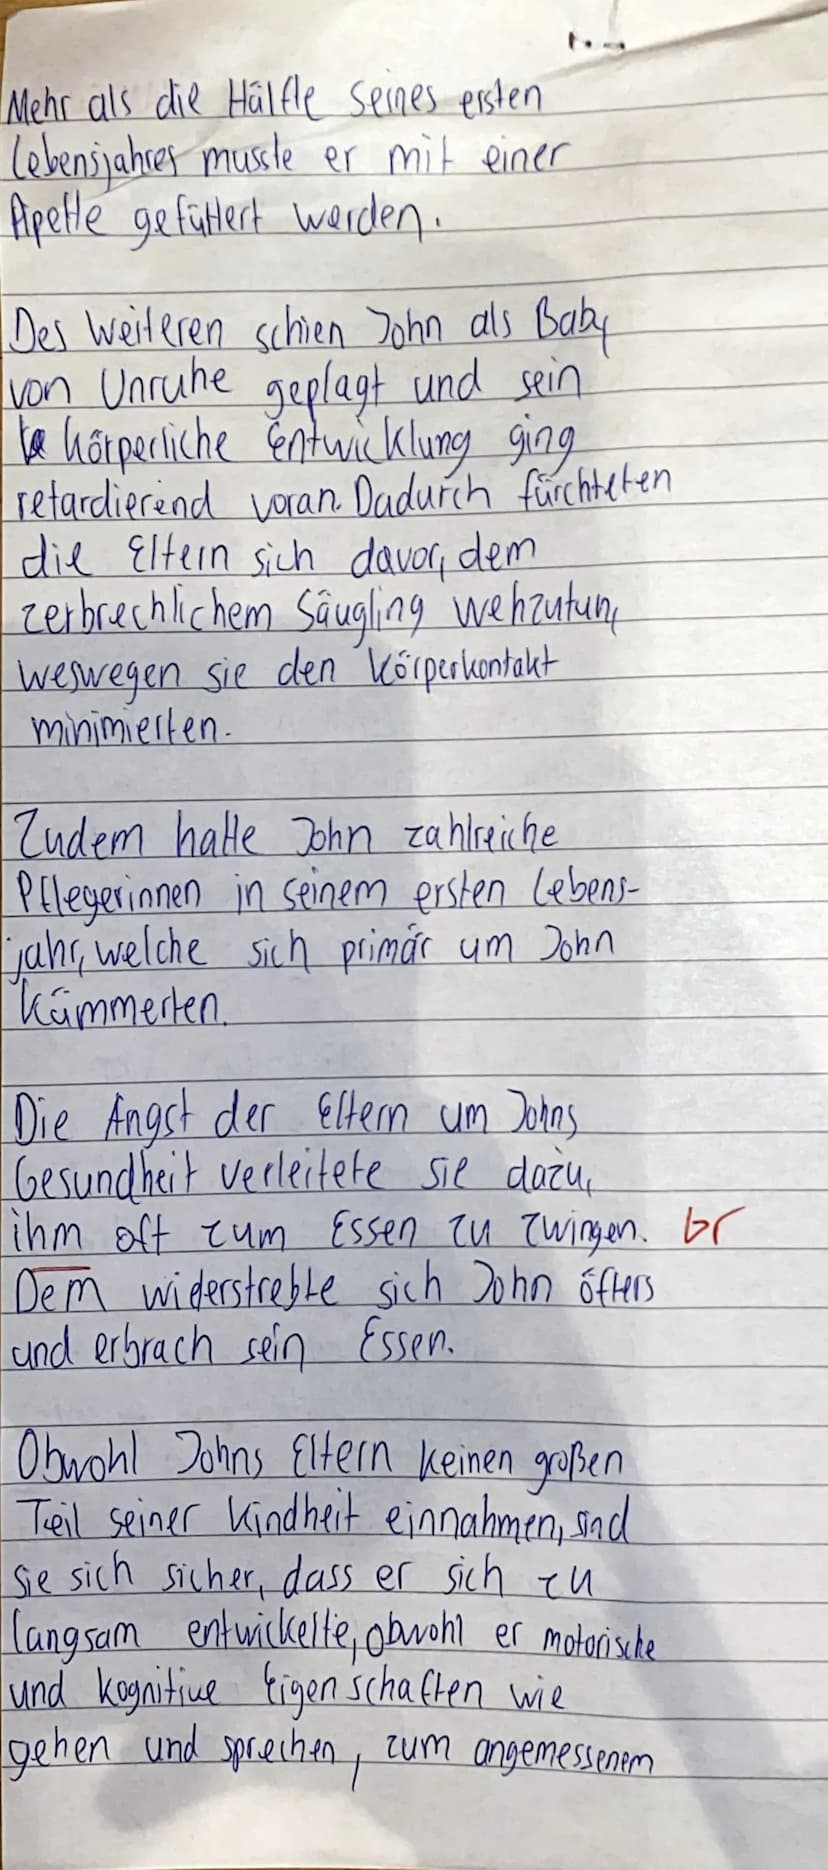 Mehr als die Hälfte seines ersten
Lebensjahres musste er mit einer
Apette gefüttert werden.
Des Weiteren schien John als Baby
von Unruhe geplagt und sein
körperliche Entwicklung ging
retardierend voran. Dadurch fürchteten
die Eltern sich davor, dem
zerbrechlichem Säugling wehzutun,
weswegen sie den Körperkontakt
minimierten.
Zudem hatte John zahlreiche
Pflegerinnen in seinem ersten Lebens-
jahr, welche sich primär um John
kümmerten.
Die Angst der Eltern um Johns
Gesundheit verleitete sie dazu,
ihm oft zum Essen zu zwingen. Gr
Dem widerstrebte sich John öfters
und erbrach sein Essen.
Obwohl Johns Eltern keinen großen
Teil seiner Kindheit einnahmen, sind
sie sich sicher, dass er sich zu
langsam entwickelte, obwohl er motorische
und kognitive Eigenschaften wie
gehen und sprechen, zum angemessenem